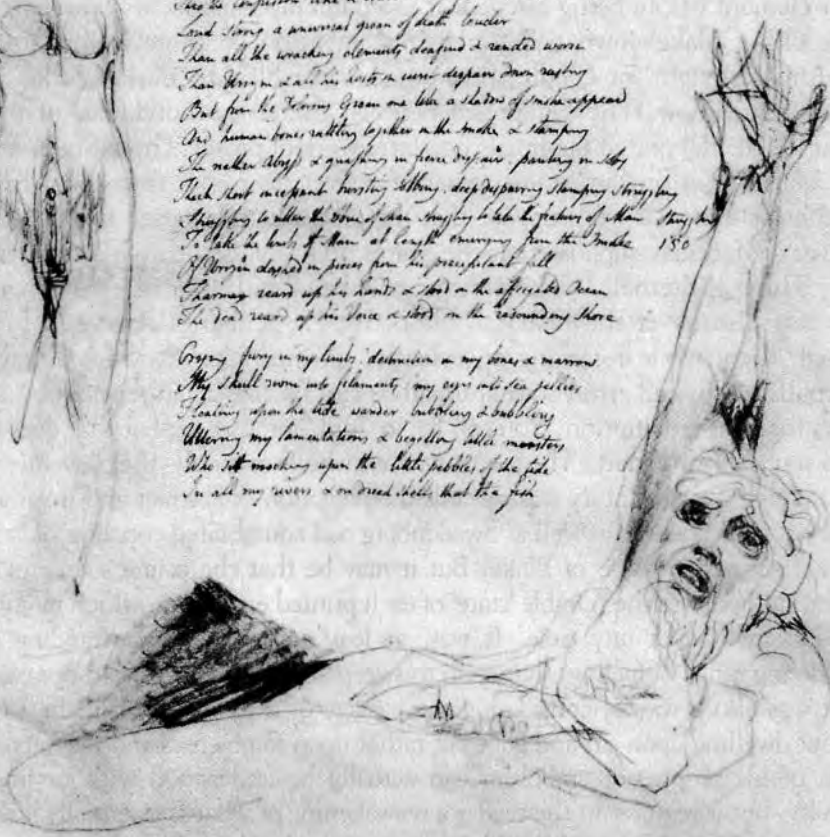 Loud strong a universal groan of death louder
Than all the wracking elements deafend & rended worse
Than Urizen & all his hosts in curst despair down rushing
But from the Dolorous Groan one like a shadow of smoke appeard
And human bones rattling together in the smoke & stamping
The nether Abyss & gnashing in fierce despair. panting in sobs
Thick short incessant bursting sobbing. deep despairing stamping struggling
Struggling to utter the voice of Man struggling to take the features of Man. Struggling
To take the limbs of Man at length emerging from the smoke 150
Of Urizen dashed in pieces from his precipitant fall
Tharmas reard up his hands & stood on the affrighted Ocean
The dead reard up his Voice & stood on the resounding shore
Crying. fury in my limbs. destruction in my bones & marrow
My skull riven into filaments. my eyes into sea jellies
Floating upon the tide wander bubbling & bubbling
Uttering my lamentations & begetting little monsters
Who sit mocking upon the little pebbles of the tide
In all my rivers & on dried shells that the fish